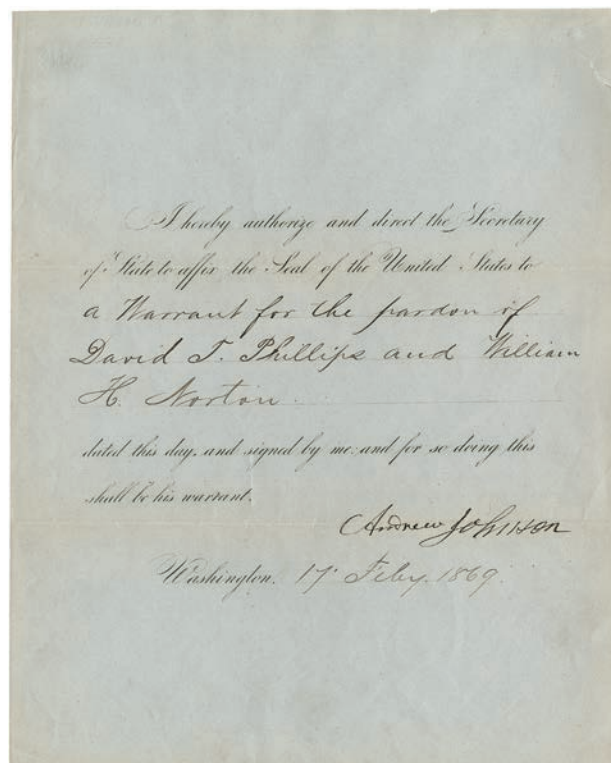 I hereby authorize and direct the Secretary
of State to affix the Seal of the United States to
a Warrant for the pardon of
David T. Phillips and William
H. Norton.
dated this day, and signed by me: and for so doing this
shall be his warrant.
Andrew Johnson
Washington, 17 Feby. 1869.